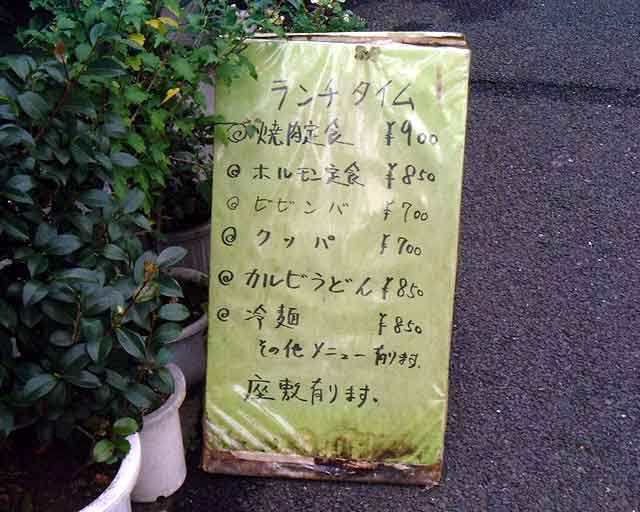 ランチタイム
@焼肉定食 ¥900
@ホルモン定食 ¥850
@ビビンバ ¥700
@クッパ ¥700
@カルビうどん ¥850
@冷麺 ¥850
その他メニュー有ります.
座敷有ります.